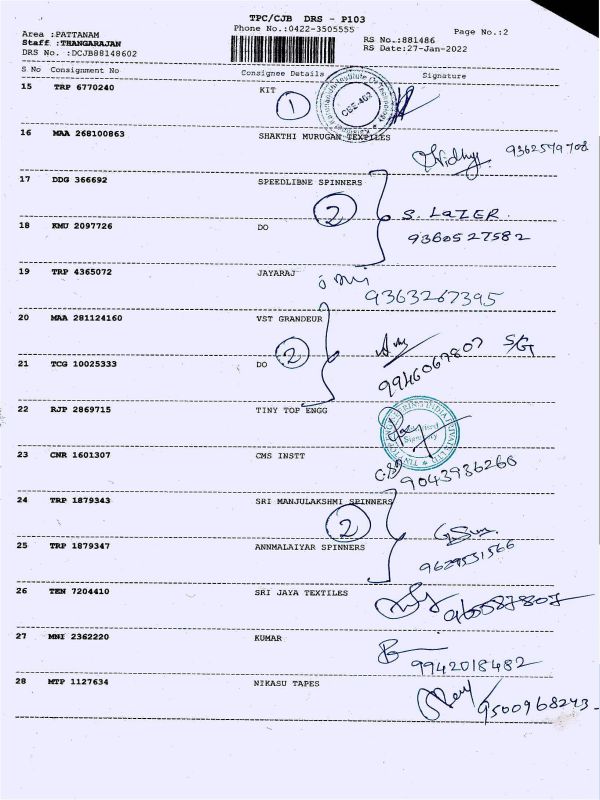 TPC/CJB DRS - P103
Area :PATTANAM Phone No.:0422-3505555 Page No.:2
Staff :THANGARAJAN RS No.:881486
DRS No. :DCJB88148602 RS Date:27-Jan-2022
S No Consignment No Consignee Details Signature
15 TRP 6770240 KIT
1
CBE-402
16 MAA 268100863 SHAKTHI MURUGAN TEXTILES
9362579708
17 DDG 366692 SPEEDLIBNE SPINNERS
2 S. LAZER.
18 KMU 2097726 DO 9360527582
19 TRP 4365072 JAYARAJ
9363267395
20 MAA 281124160 VST GRANDEUR
2 S/G
21 TCG 10025333 DO 9946067807
22 RJP 2869715 TINY TOP ENGG
23 CNR 1601307 CMS INSTT
9043936268
24 TRP 1879343 SRI MANJULAKSHMI SPINNERS
2
25 TRP 1879347 ANNMALAIYAR SPINNERS
9629531566
26 TEN 7204410 SRI JAYA TEXTILES
27 MNI 2362220 KUMAR
9942018482
28 MTP 1127634 NIKASU TAPES
9500968243